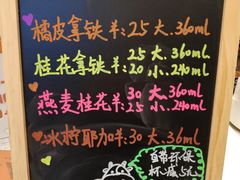 橘皮拿铁¥:25 大.360ml
桂花拿铁¥:25 大.360ml
20 小.240ml
燕麦桂花¥:30 大.360ml
25 小.240ml
冰柠耶加¥:30 大.360ml
自带环保
杯.减5元